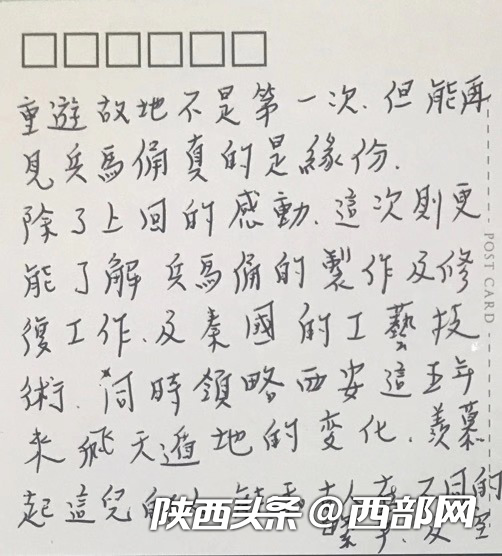 重遊故地不是第一次.但能再
見兵馬俑真的是緣份.
除了上回的感動.這次則更
能了解兵馬俑的製作及修
復工作.及秦國的工藝技
術.同時領略西安這五年
來飛天遁地的變化.羨慕
起這兒的
POST CARD
陕西头条 @西部网